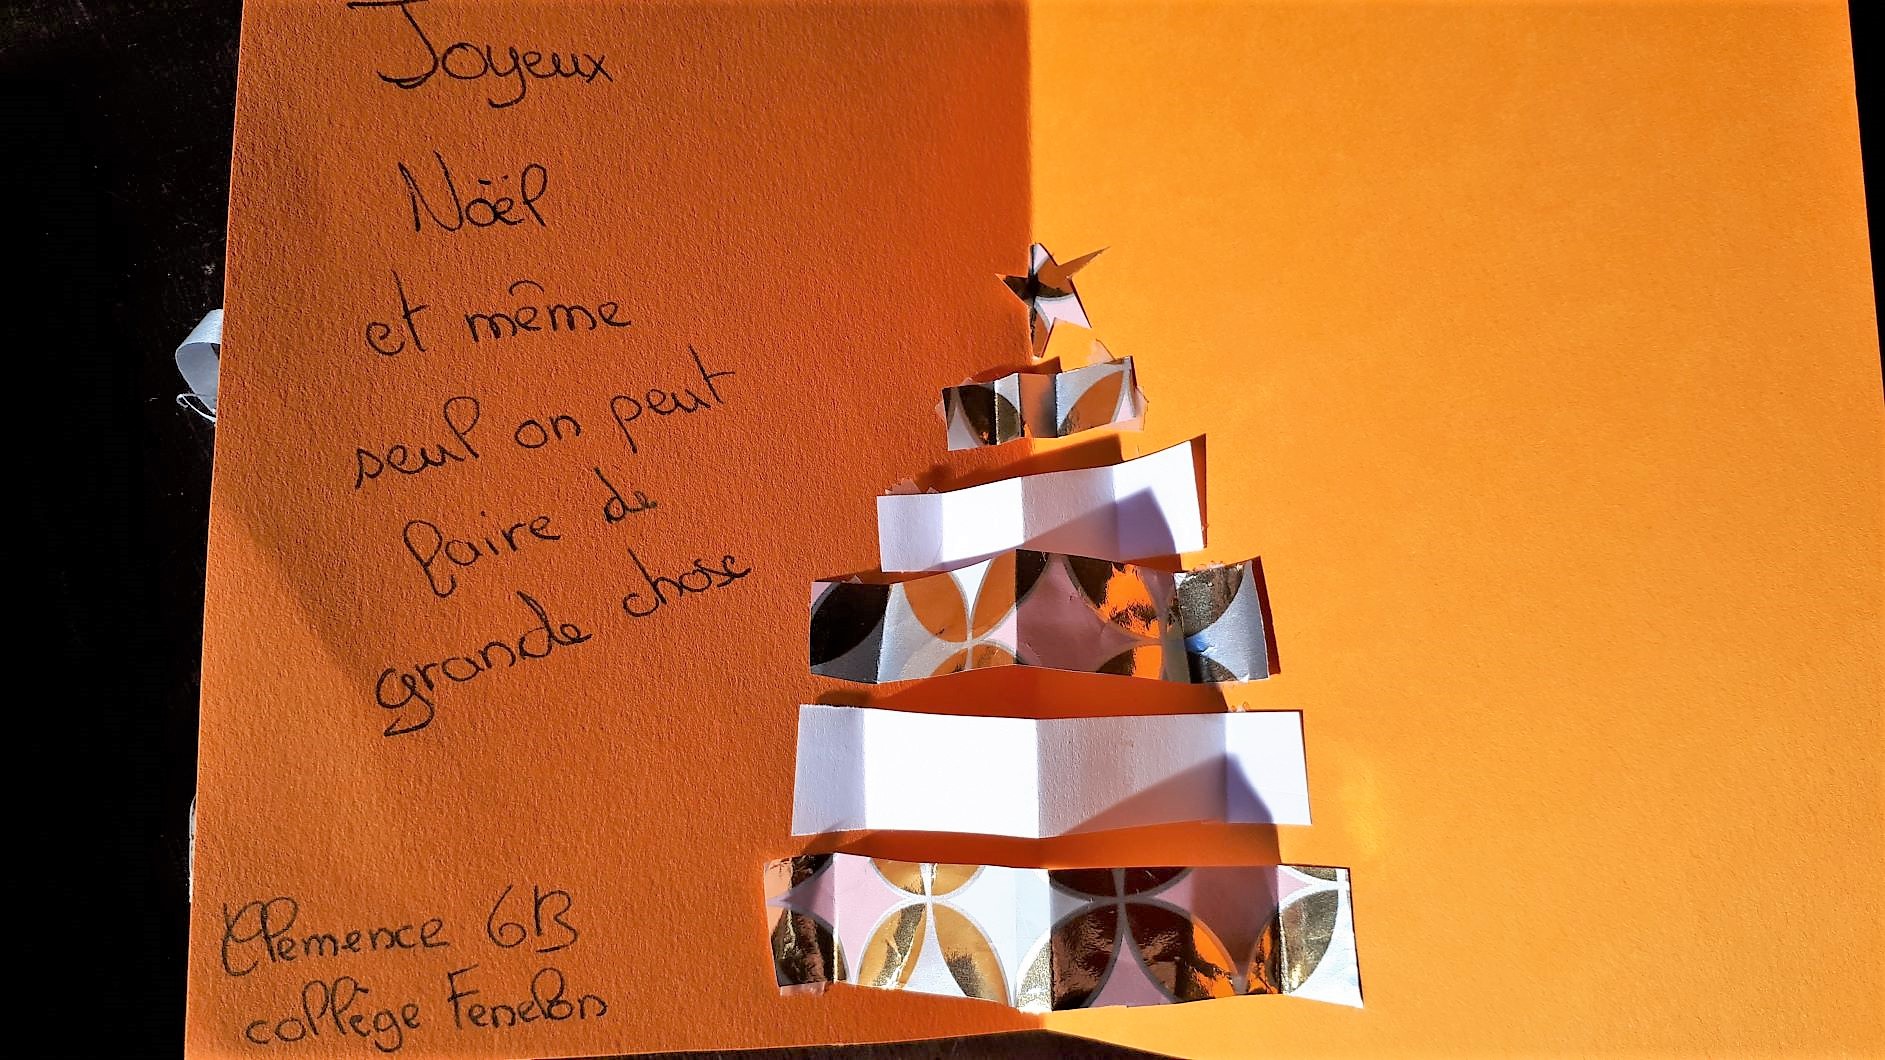 Joyeux
Nöël
et même
seul on peut
faire de
grande chose
Clemence 6B
collège Fenelon